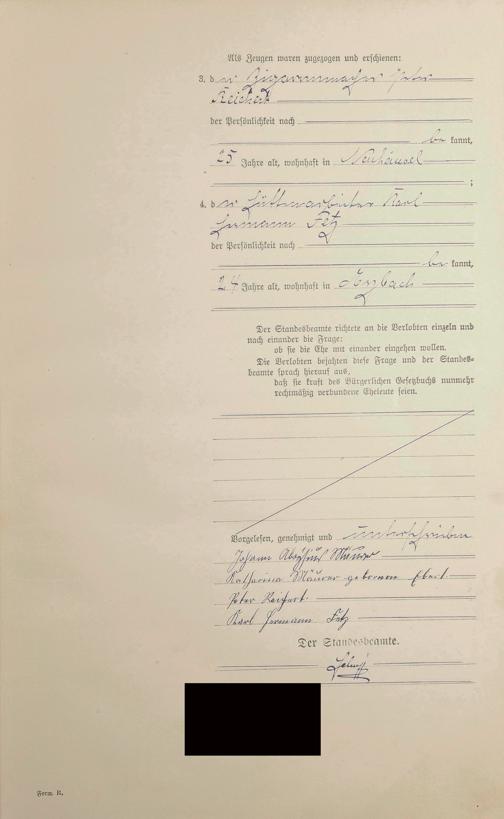 Als Zeugen waren zugezogen und erschienen:
3. der Zigarrenmacher Peter
Reichert
der Persönlichkeit nach
be kannt,
25 Jahre alt, wohnhaft in Neuhäusel
;
4. der Hüttenarbeiter Karl
Hermann Fetz
der Persönlichkeit nach
be kannt,
24 Jahre alt, wohnhaft in
Der Standesbeamte richtete an die Verlobten einzeln und
nach einander die Frage:
ob sie die Ehe mit einander eingehen wollen.
Die Verlobten bejahten diese Frage und der Standes-
beamte sprach hierauf aus,
daß sie kraft des Bürgerlichen Gesetzbuchs nunmehr
rechtmäßig verbundene Eheleute seien.
Vorgelesen, genehmigt und unterschrieben
Johann Mäurer
Katharina Mäurer geborenen Ebert
Peter Reichert
Karl Hermann Fetz
Der Standesbeamte.
Form. B.